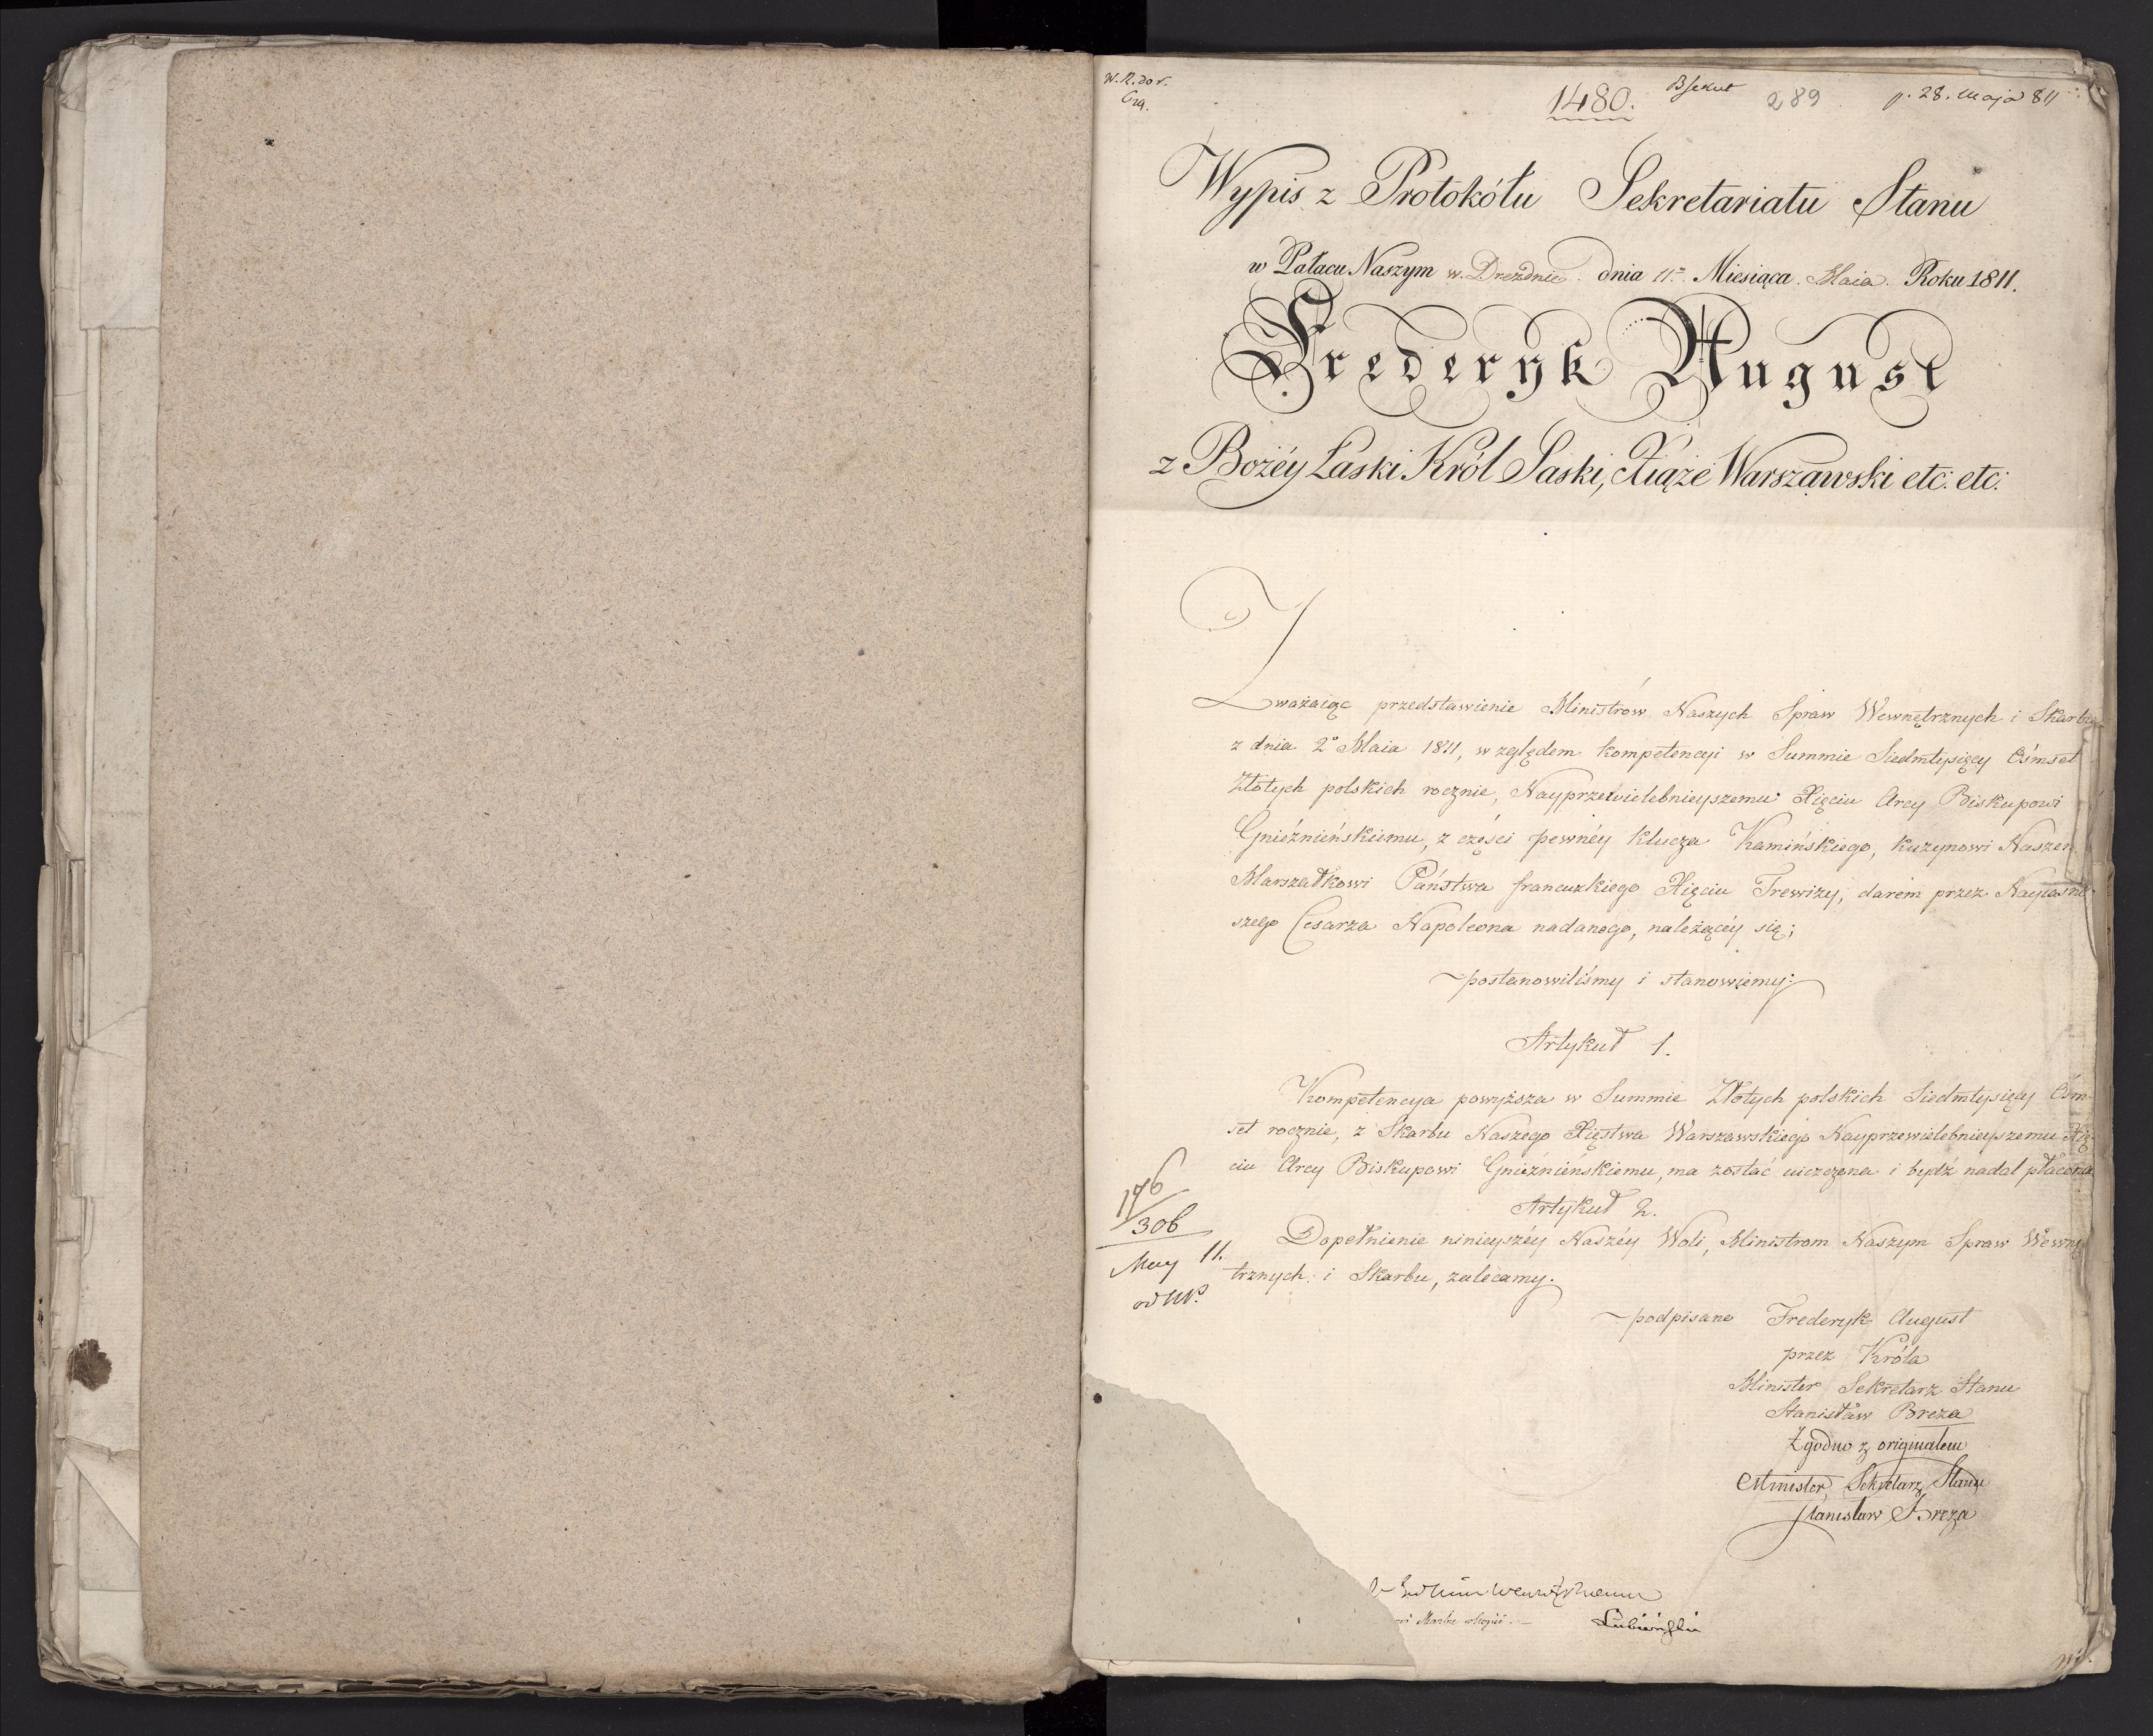 W. R. do r.
1480.
289
p. 28. maja 811
Wypis z Protokółu Sekretariatu Stanu
w Pałacu Naszym w Dreźdnie dnia 11º Miesiąca Maia Roku 1811.
Frederyk August
z Bożéy Łaski Król Saski, Xiążę Warszawski etc: etc:
Zważaiąc przedstawienie Ministrów Naszych Spraw Wewnętrznych i Skarbu
z dnia 2º Maia 1811, względem kompetencyi w Summie Siedmtysięcy Ośmset
Złotych polskich rocznie, Nayprzewielebnieyszemu Xięciu Arcy Biskupowi
Gnieźnieńskiemu, z części pewnéy klucza Kamińskiego, kuzynowi Naszem
Marszałkowi Państwa francuzkiego Xięciu Trewizy, darem przez Nayiaśniey
szego Cesarza Napoleona nadanego, należącéy się;
postanowiliśmy i stanowiemy:
Artykuł 1.
Kompetencya powyższa w Summie Złotych polskich Siedmtysięcy Ośm
set rocznie, z Skarbu Naszego Xięstwa Warszawskiego Nayprzewielebnieyszemu Xię
ciu Arcy Biskupowi Gnieźnieńskiemu, ma zostać uiszczona i bydź nadal płacona
Artykuł 2.
Dopełnienie ninieyszéy Naszéy Woli, Ministrom Naszym Spraw Wewnę
trznych i Skarbu, zalecamy.
176
306
May 11.
podpisano Frederyk August
przez Króla
Minister Sekretarz Stanu
Stanisław Breza
Zgodno z originałem
Minister Sekretarz Stanu
Stanisław Breza
Lubieński